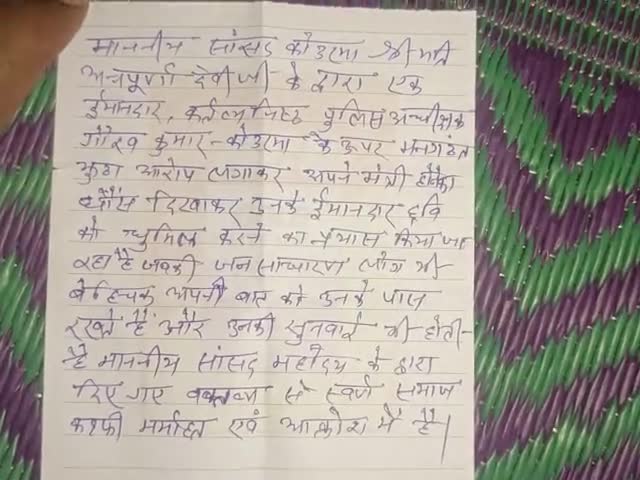 माननीय सांसद कोडरमा श्रीमती
अन्नपूर्णा देवी जी के द्वारा एक
ईमानदार, कर्तव्यनिष्ठ पुलिस अधीक्षक
गौरव कुमार - कोडरमा के ऊपर मनगढंत
झुठा आरोप लगाकर अपने मंत्री होने का
धौंस दिखाकर उनके ईमानदार छवि
को धुमिल करने का प्रयास किया जा
रहा है जबकी जन साधारण लोग भी
बेहिचक अपनी बात को उनके पास
रखते हैं और उनकी सुनवाई भी होती-
है माननीय सांसद महोदय के द्वारा
दिए गए वक्तव्य से स्वर्ण समाज
काफी मर्माहत एवं आक्रोश में है|